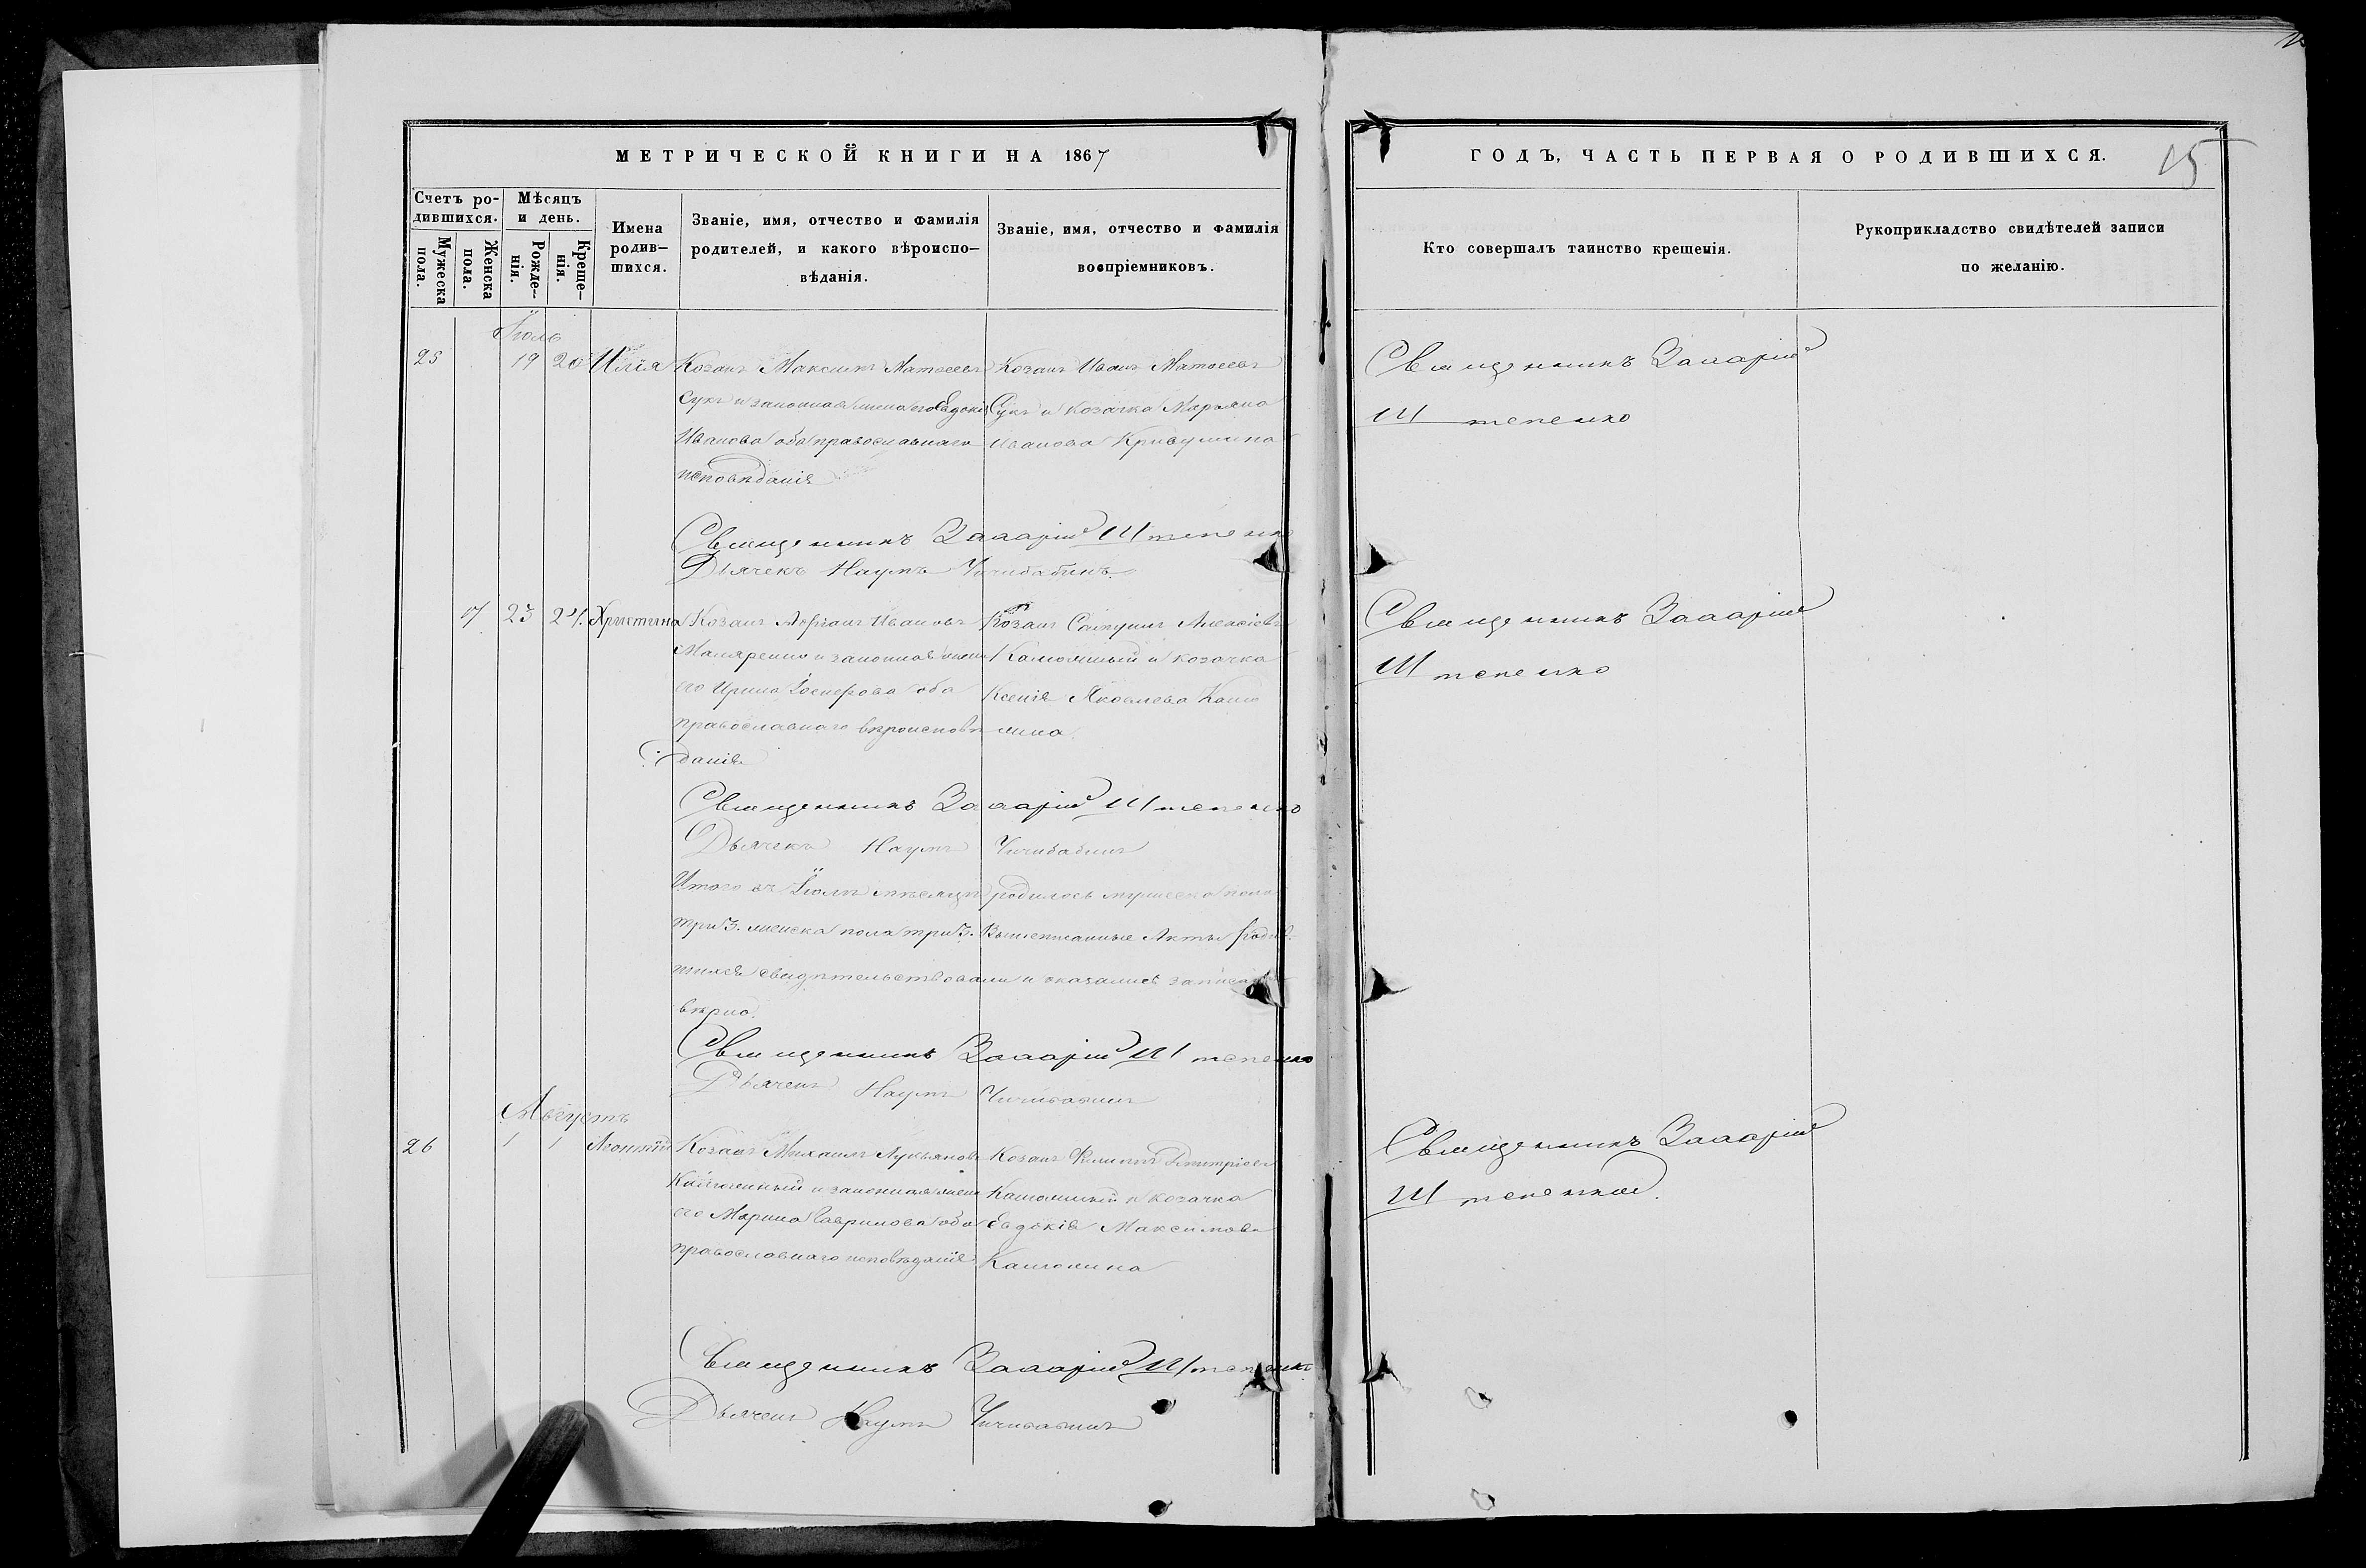 МЕТРИЧЕСКОЙ КНИГИ НА 1867
Счетъ ро-
дившихся.
Мужеска
пола.
Женска
пола.
Мѣсяцъ
и день.
Рожде-
нія.
Креще-
нія.
Имена
родив-
шихся.
Званіе, имя, отчество и фамилія
родителей, и какого вѣроиспо-
вѣданія.
Званіе, имя, отчество и фамилія
воспріемниковъ.
Іюль
25 19 20 Илія Козакъ Максимъ Матѳеевъ
Сукъ и законная жена его Евдокія
Иванова оба православнаго
исповѣданія
Козакъ Иванъ Матѳеевъ
Сукъ и козачка Марьяна
Иванова
Священникъ Захарій Штепенко
Дьячекъ Наумъ Чичибабинъ.
23 24. Христина Козакъ Ивановъ
и законная жена
его Ирина оба
православнаго вѣроисповѣ
данія
Козакъ
и козачка
Ксенія Яковлева
Священникъ Захарій Штепенко
Дьячекъ Наумъ Чичибабинъ
Итого въ Іюлѣ мѣсяцѣ родилось мужеска пола
три 3. женска пола три 3. Вышеписанные Акты родив-
шихся свидѣтельствовали и оказались записаны
вѣрно.
Священникъ Захарій Штепенко
Дьячекъ Наумъ Чичибабинъ
Августъ
26 1 1 Козакъ Михаилъ Лукьяновъ
и законная жена
его Марина Гаврилова оба
православнаго исповѣданія
Козакъ Филиппъ Дмитріевъ
и козачка
Евдокія Максимова
Священникъ Захарій Штепенко
Дьячекъ Наумъ Чичибабинъ
ГОДЪ, ЧАСТЬ ПЕРВАЯ О РОДИВШИХСЯ.
15
Кто совершалъ таинство крещенія.
Рукоприкладство свидѣтелей записи
по желанію.
Священникъ Захарій
Штепенко
Священникъ Захарій
Штепенко
Священникъ Захарій
Штепенко.